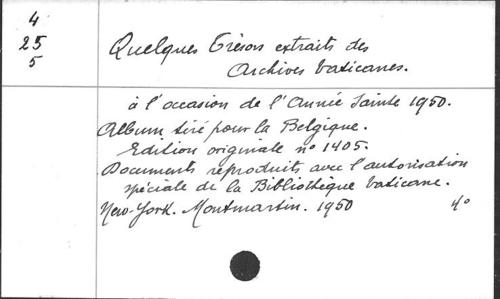 4
25
5
Quelques Trésors extraits des
Archives Vaticanes.
à l'occasion de l'Année Sainte 1950.
Album tiré pour la Belgique.
Edition originale n° 1405.
Documents reproduits avec l'autorisation
spéciale de la Bibliothèque Vaticane.
New-York. Montmartin. 1950 4°